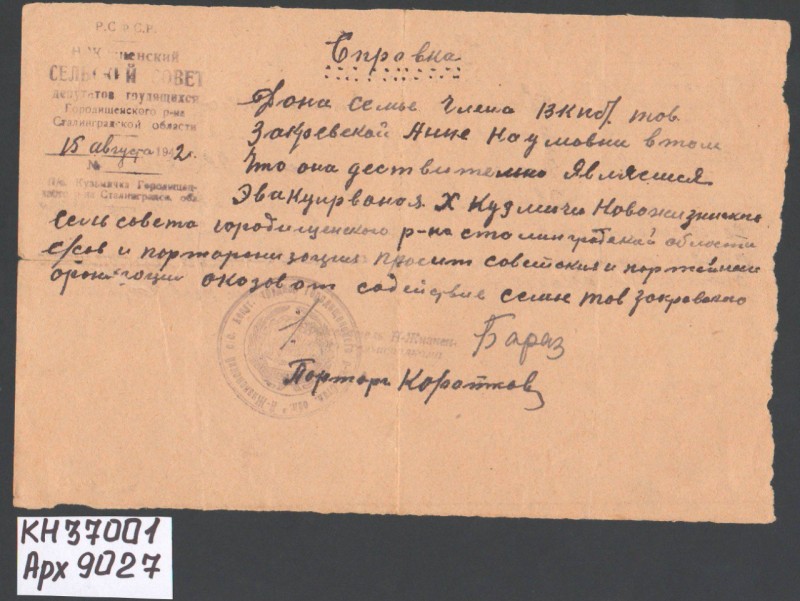 Р.С.Ф.С.Р.
СЕЛЬСКИЙ СОВЕТ
депутатов трудящихся
Городищенского р-на
Сталинградской области
15 августа 1942 г.
№
Справка
Дона семье члена ВКПб/ тов
Закревской Анне Наумовни в том
Что она дествительно Являетися
Эвакуирваноя Х Кузмичи Новожизнинского
сельсовета городищенского р-на сталинградской области
с/сов и порторганизация просит советския и портейния
оргонизации окозоват содействие семье тов закревского
Бараз
Порторг Коротков
КН37001
Арх 9027